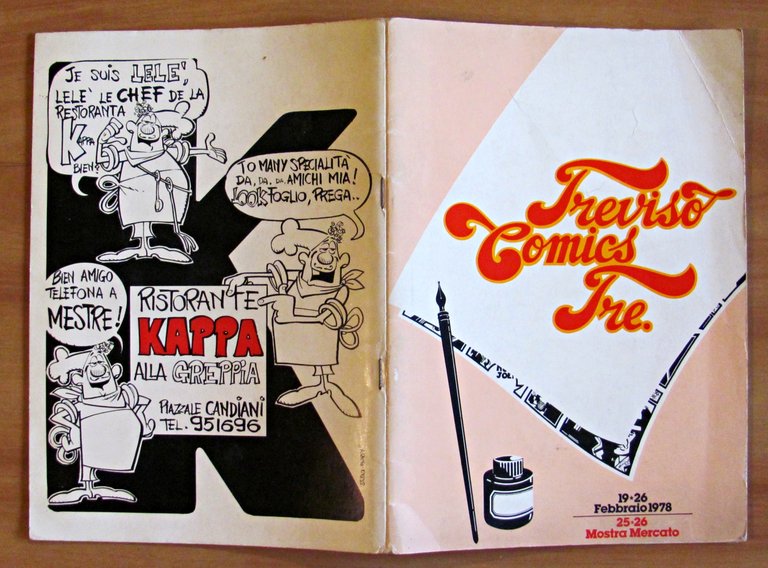 JE SUIS LELE',
LELE' LE CHEF DE LA
RISTORANTA
KAPPA
BIEN!
TO MANY SPECIALITÀ
DA, DA, DA, AMICHI MIA!
LOOK FOGLIO, PREGA..
BIEN AMIGO
TELEFONA A
MESTRE!
RISTORANTE
KAPPA
ALLA GREPPIA
PIAZZALE CANDIANI
TEL. 951696
Treviso
Comics
Tre.
19•26
Febbraio 1978
25•26
Mostra Mercato